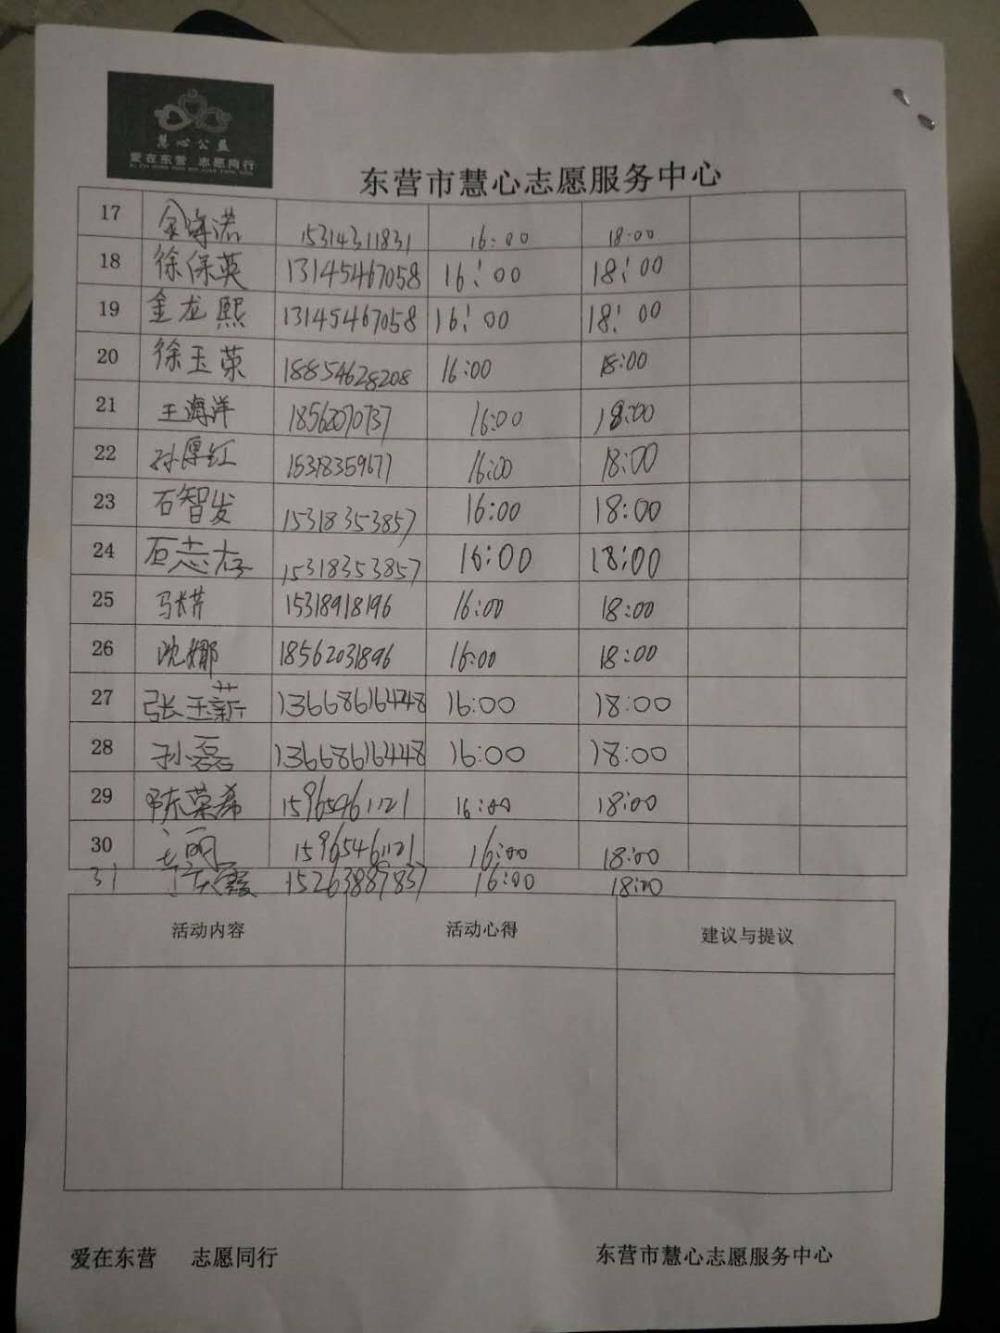 慧心公益
爱在东营 志愿同行
东营市慧心志愿服务中心
17 金海诺 15314311831 16:00 18:00
18 徐保英 13145467058 16:00 18:00
19 金龙熙 13145467058 16:00 18:00
20 徐玉荣 18854628208 16:00 18:00
21 王海洋 18562070737 16:00 18:00
22 孙厚红 15318359677 16:00 18:00
23 石智发 15318353857 16:00 18:00
24 石志存 15318353857 16:00 18:00
25 15318918196 16:00 18:00
26 沈娜 18562031896 16:00 18:00
27 张玉薪 13668616448 16:00 18:00
28 孙磊 13668616448 16:00 18:00
29 陈荣希 15965461121 16:00 18:00
30 15965461121 16:00 18:00
31 15263887837 16:00 18:00
活动内容 活动心得 建议与提议
爱在东营 志愿同行 东营市慧心志愿服务中心